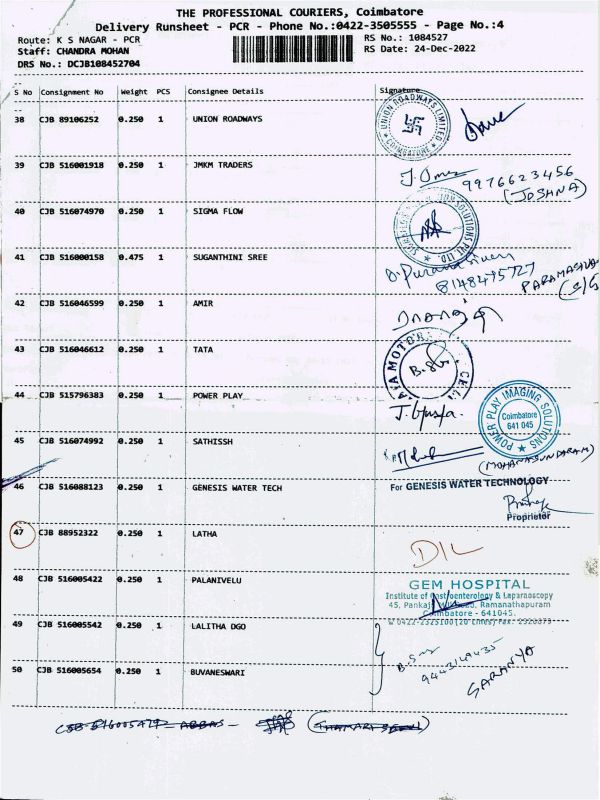 THE PROFESSIONAL COURIERS, Coimbatore
Delivery Runsheet - PCR - Phone No.:0422-3505555 - Page No.:4
Route: K S NAGAR - PCR
RS No.: 1084527
Staff: CHANDRA MOHAN
RS Date: 24-Dec-2022
DRS No.: DCJB108452704
S No Consignment No Weight PCS Consignee Details Signature
38 CJB 89106252 0.250 1 UNION ROADWAYS
UNION ROADWAYS LIMITED
COIMBATORE
39 CJB 516001918 0.250 1 JMKM TRADERS
9976623456
(JOSHNA)
40 CJB 516074970 0.250 1 SIGMA FLOW
SOLUTIONS PVT LTD.
41 CJB 516000158 0.475 1 SUGANTHINI SREE
8148475727
42 CJB 516046599 0.250 1 AMIR
43 CJB 516046612 0.250 1 TATA
MOTOR
44 CJB 515796383 0.250 1 POWER PLAY
POWER PLAY IMAGING SOLUTIONS
Coimbatore
641 045
45 CJB 516074992 0.250 1 SATHISSH
(MOHANASUNDARAM)
46 CJB 516088123 0.250 1 GENESIS WATER TECH
For GENESIS WATER TECHNOLOGY
Proprietor
47 CJB 88952322 0.250 1 LATHA
D/L
48 CJB 516005422 0.250 1 PALANIVELU
GEM HOSPITAL
Institute of Gastroenterology & Laparoscopy
45, Ramanathapuram
Coimbatore - 641045.
49 CJB 516005542 0.250 1 LALITHA DGO
9443149435
SARANYA
50 CJB 516005654 0.250 1 BUVANESWARI